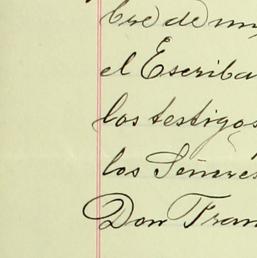 bre de m
el Escriba
los testigos
los Señores
Don Fran